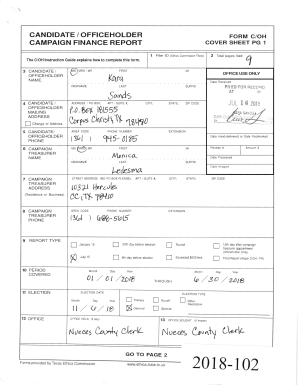 CANDIDATE / OFFICEHOLDER FORM C/OH
CAMPAIGN FINANCE REPORT COVER SHEET PG 1
The C/OH Instruction Guide explains how to complete this form. 1 Filer ID (Ethics Commission Filers) 2 Total pages filed: 9
3 CANDIDATE / OFFICEHOLDER NAME MS / MRS / MR FIRST MI
Kara
NICKNAME LAST SUFFIX
Sands
OFFICE USE ONLY
Date Received
FILED FOR RECORD
4 CANDIDATE / OFFICEHOLDER MAILING ADDRESS ADDRESS / PO BOX; APT / SUITE #; CITY; STATE; ZIP CODE
P.O. Box 181555
Corpus Christi, TX 78480
Change of Address
5 CANDIDATE/ OFFICEHOLDER PHONE AREA CODE PHONE NUMBER EXTENSION
(361) 945-0185
Date Hand-delivered or Date Postmarked
6 CAMPAIGN TREASURER NAME MS / MRS / MR FIRST MI
Monica
NICKNAME LAST SUFFIX
Ledesma
Receipt # Amount $
Date Processed
Date Imaged
7 CAMPAIGN TREASURER ADDRESS STREET ADDRESS (NO PO BOX PLEASE); APT / SUITE #; CITY; STATE; ZIP CODE
(Residence or Business)
10321 Hercules
CC, TX 78410
8 CAMPAIGN TREASURER PHONE AREA CODE PHONE NUMBER EXTENSION
(361) 688-5615
9 REPORT TYPE January 15 30th day before election Runoff 15th day after campaign treasurer appointment (Officeholder Only)
July 15 8th day before election Exceeded $500 limit Final Report (Attach C/OH - FR)
10 PERIOD COVERED Month Day Year Month Day Year
01 / 01 / 2018 THROUGH 6 / 30 / 2018
11 ELECTION ELECTION DATE ELECTION TYPE
Month Day Year Primary Runoff Other Description
11 / 6 / 18 General Special
12 OFFICE OFFICE HELD (if any) 13 OFFICE SOUGHT (if known)
Nueces County Clerk Nueces County Clerk
GO TO PAGE 2
Forms provided by Texas Ethics Commission www.ethics.state.tx.us
2018-102